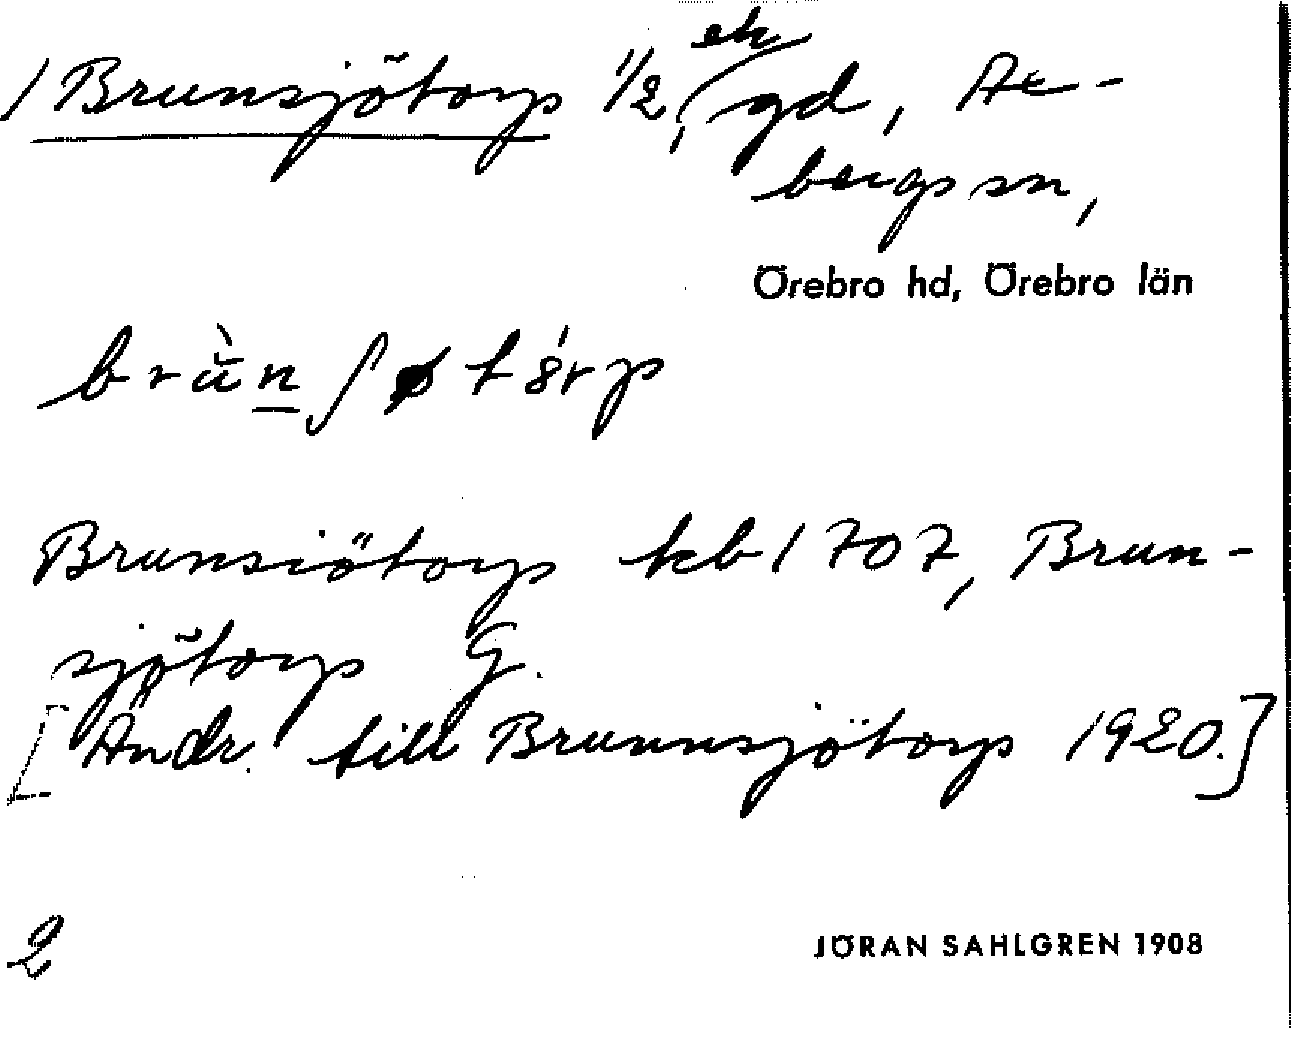 / Brunsjötorp 1/2, ek gd, Ae-
bergs sn,
Örebro hd, Örebro län
Brunsiötorp kb 1707, Brun-
sjötorp G.
[Ändr. till Brunnsjötorp 1920.]
2
JÖRAN SAHLGREN 1908